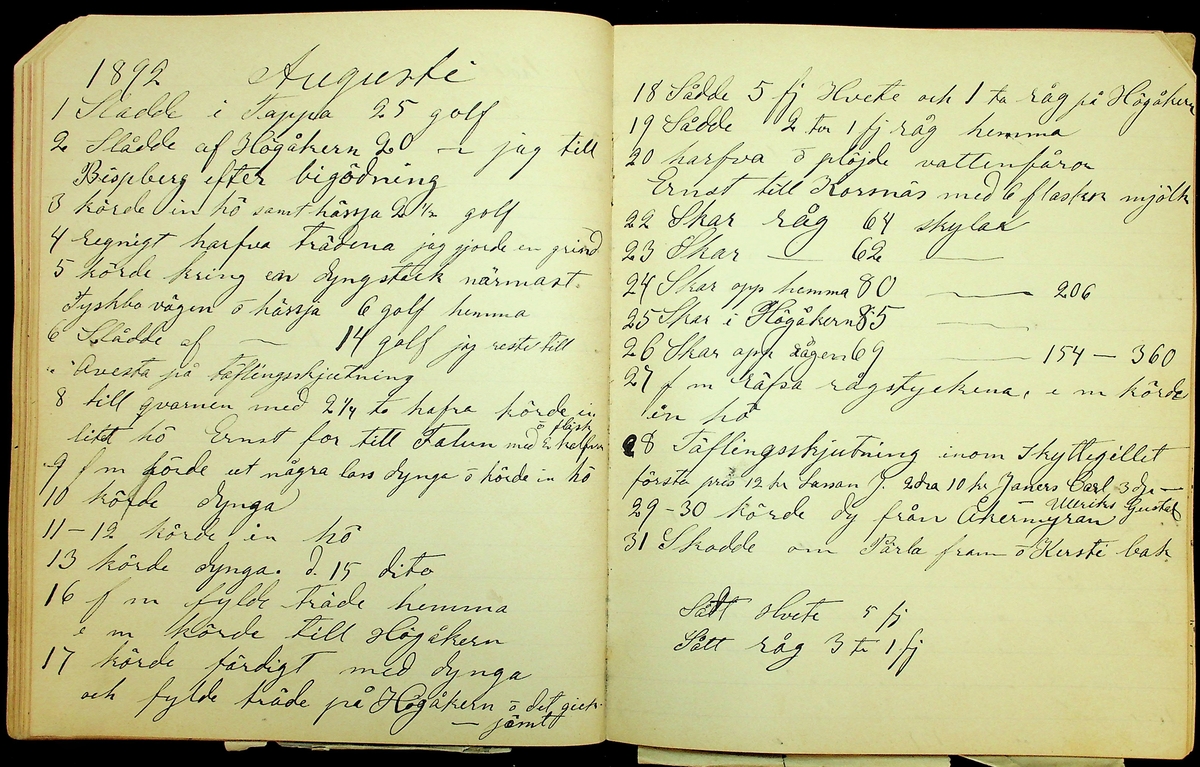 1892 Augusti
1 Sladde i Tappa 25 golf
2 Slådde af Högåkern 20 — jag till
Bispberg efter bigödning
3 körde in hö samt hässja 2 1/2 golf
4 regnigt harfva trädena jag gjorde en grind
5 körde kring en dyngstack närmast
Tyskbo vägen o hässja 6 golf hemma
6 Slådde af — 14 golf jag reste till
" Avesta på täflingsskjutning
8 till qvarnen med 2 1/4 to hafra körde in
litet hö Ernst for till Falun med o fläsk
9 f m körde ut några lass dynga o körde in hö
10 körde dynga
11-12 körde in hö
13 körde dynga. d. 15 dito
16 f m fylde träde hemma
e m körde till Högåkern
17 körde färdigt med dynga
och fylde träde på Högåkern o det gick
— jämt
18 Sådde 5 fj Hvete och 1 ta råg på Högåkern
19 Sådde 2 tor 1 fj råg hemma
20 harfva o plöjde vattenfåror
Ernst till Korsnäs med 6 flaskor mjölk
22 Skar råg 64 skylar
23 Skar — 62 —
24 Skar opp hemma 80 — 206
25 Skar i Högåkern 85 —
26 Skar opp rågen 69 — 154 — 360
27 f m räfsa rågstyckena, e m körde
in hö
28 Täflingsskjutning inom Skyttegillet
första pris 12 kr Lassan J. 2dra 10 kr Janers Carl 3dje —
Ulriks Gustaf
29-30 körde dy från Åkermyran
31 Skodde om Pärla fram o Kerste bak
Sått Hvete 5 fj
Sått råg 3 to 1 fj